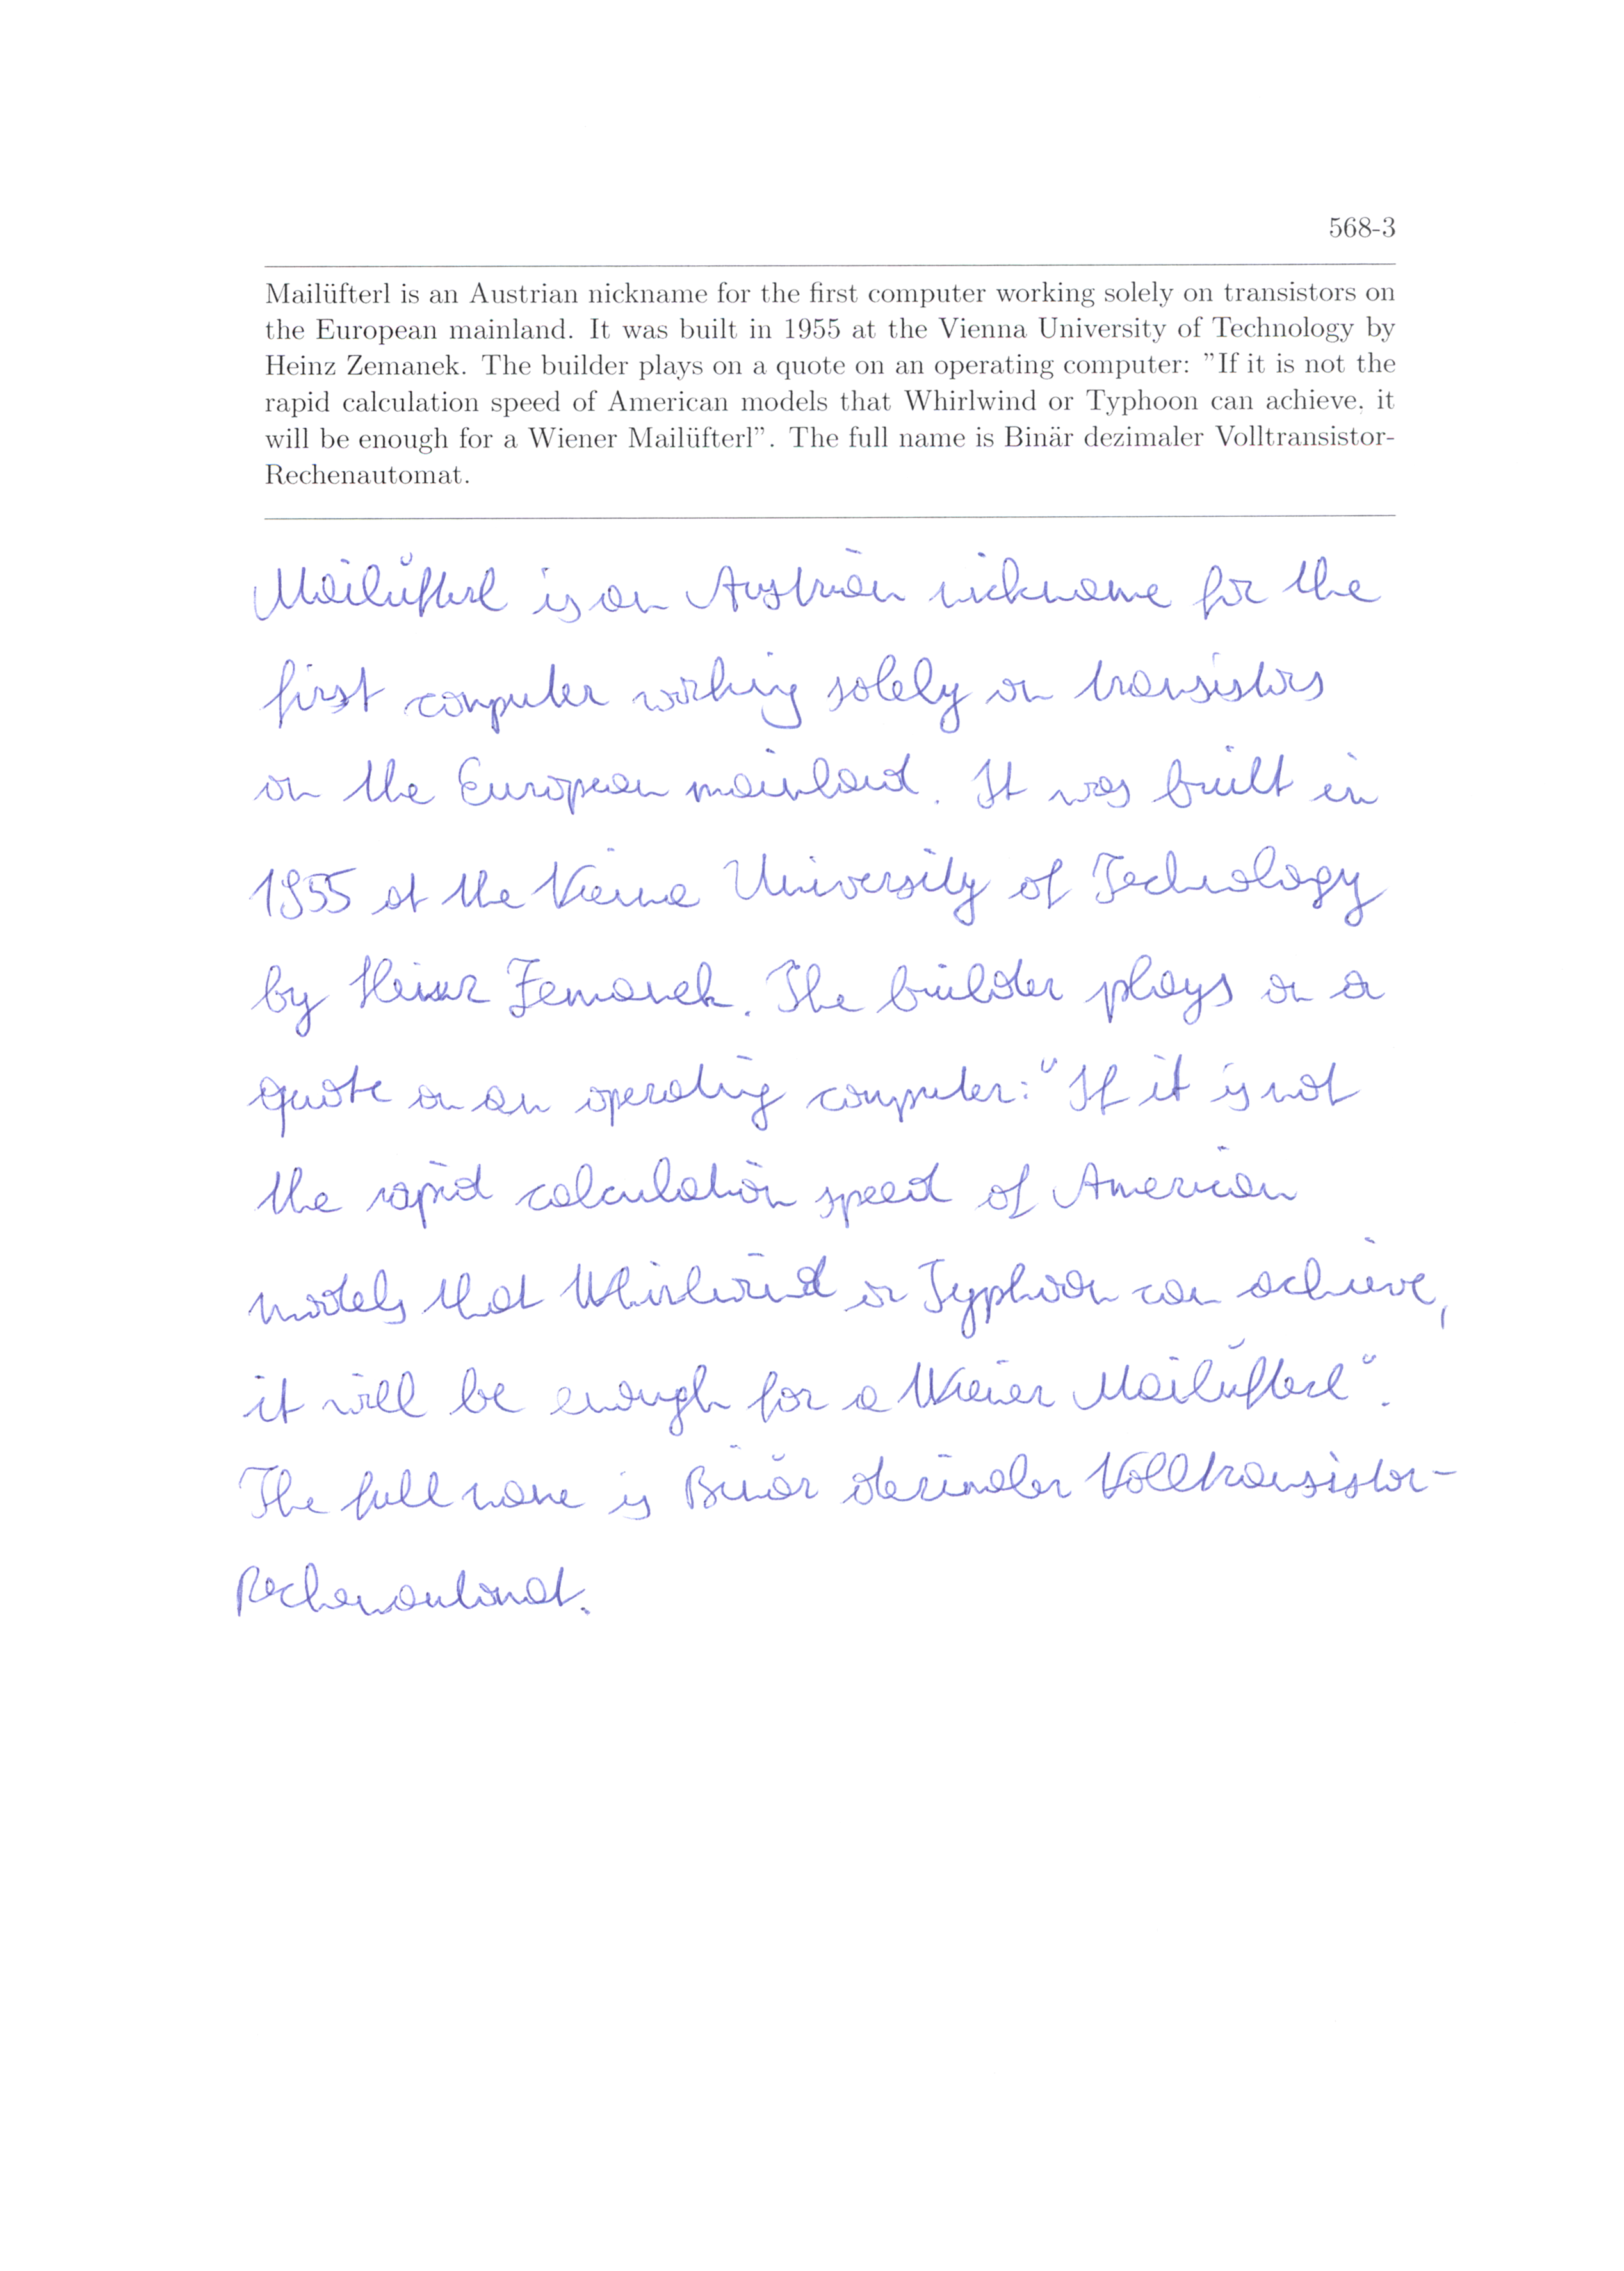 568-3
Mailüfterl is an Austrian nickname for the first computer working solely on transistors on
the European mainland. It was built in 1955 at the Vienna University of Technology by
Heinz Zemanek. The builder plays on a quote on an operating computer: "If it is not the
rapid calculation speed of American models that Whirlwind or Typhoon can achieve, it
will be enough for a Wiener Mailüfterl". The full name is Binär dezimaler Volltransistor-
Rechenautomat.
Mailüfterl is an Austrian nickname for the
first computer working solely on transistors
on the European mainland. It was built in
1955 at the Vienna University of Technology
by Heinz Zemanek. The builder plays on a
quote on an operating computer: "If it is not
the rapid calculation speed of American
models that Whirlwind or Typhoon can achieve,
it will be enough for a Wiener Mailüfterl".
The full name is Binär dezimaler Volltransistor-
Rechenautomat.